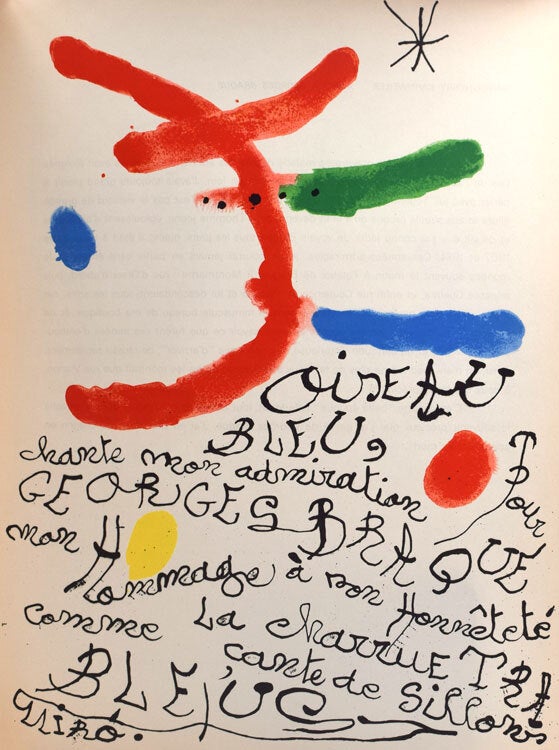 OiSEAU
BLEU,
chante mon admiration Pour
GEORGES BRAQUE
mon Hommage à son Honnêteté
comme La charrue TRA
çante de Sillons
BLEUS
MIRÓ.